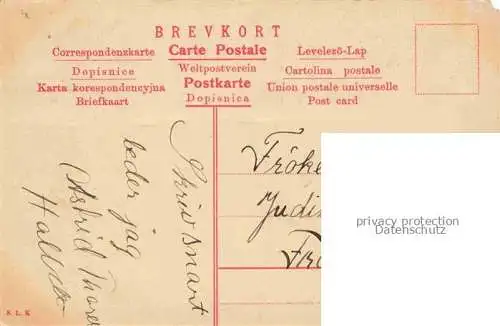 BREVKORT
Correspondenzkarte Carte Postale Levelező-Lap
Dopisnice Weltpostverein Cartolina postale
Karta korespondencyjna Postkarte Union postale universelle
Briefkaart Dopisnica Post card
Skriv snart
beder jag
Astrid
Fröke
Judi
Fr
privacy protection
Datenschutz
S. L. K